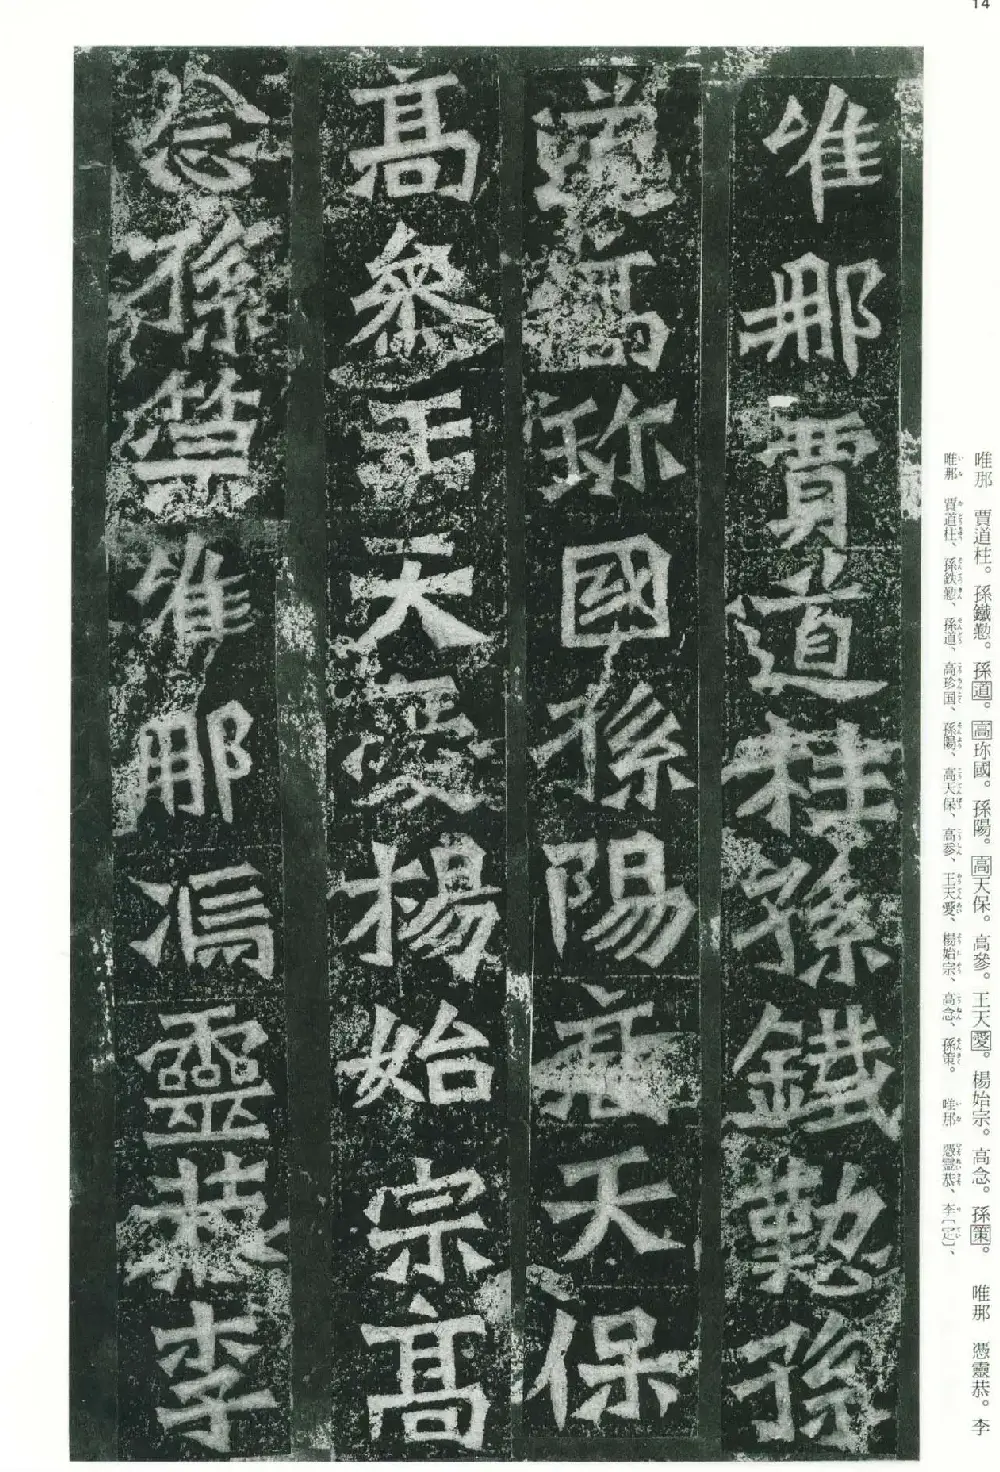 14
唯那賈道柱孫鐵懃孫
道高珎國孫陽高天保
高參王天愛楊始宗高
念孫策唯那馮靈恭李
唯那 賈道柱。孫鐵懃。孫道。高珎國。孫陽。高天保。高參。王天愛。楊始宗。高念。孫策。 唯那 憑靈恭。李
唯那 賈道柱、孫鉄懃、孫道、高珍国、孫陽、高天保、高参、王天愛、楊始宗、高念、孫策。 唯那 憑霊恭、李